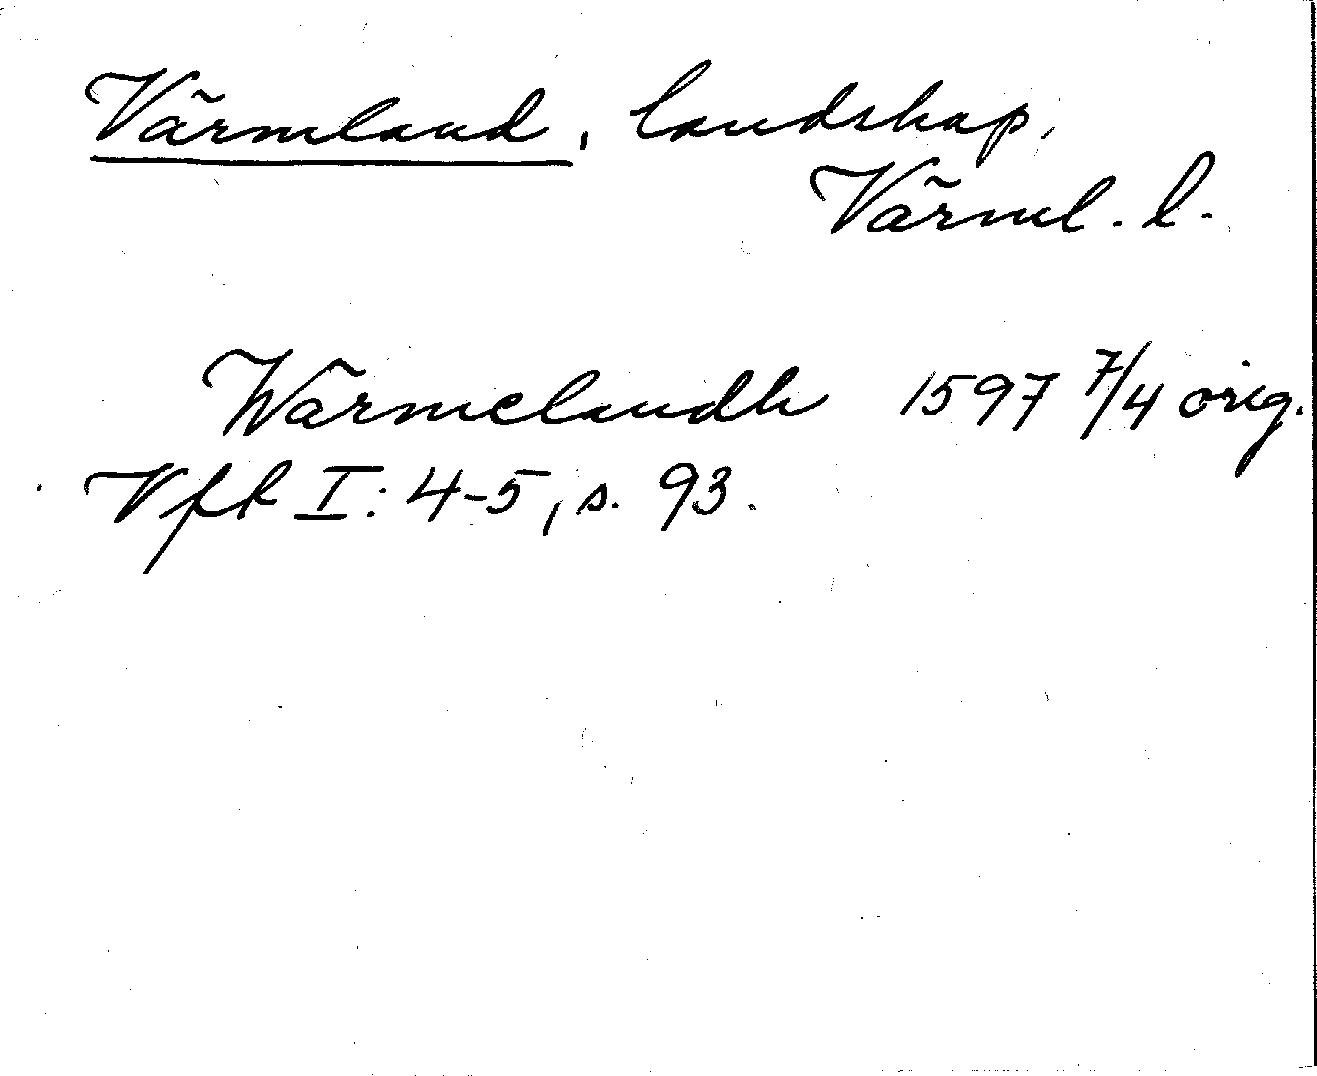 Värmland, landskap,
Värml. l.
Wärmelandh 1597 7/4 orig.
Vfh I: 4-5, s. 93.